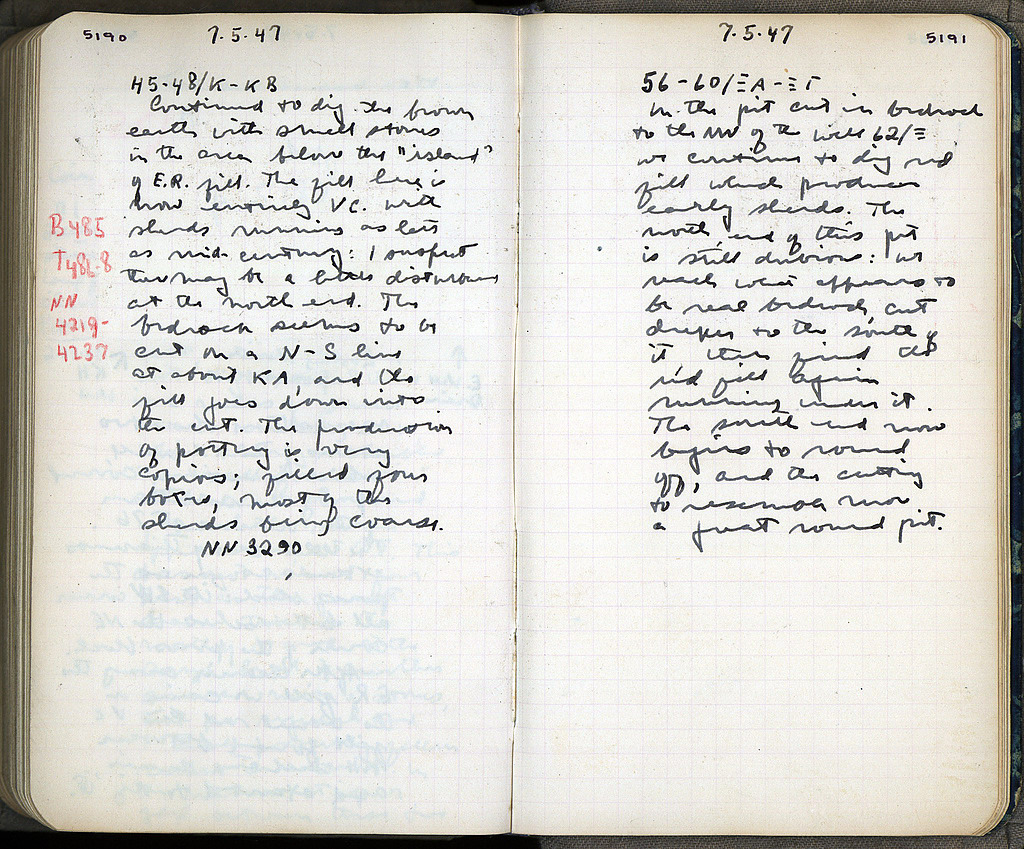 5190
7.5.47
45-48/K-KB
Continued to dig the brown
earth with small stones
in the area below the "island"
of E.R. fill. The fill here is
now entirely VC. with
sherds running as late
as mid-century: I suspect
there may be a little disturbance
at the north end. The
bedrock seems to be
cut on a N-S line
at about KA, and the
fill goes down into
the cut. The production
of pottery is very
copious; filled four
boxes, most of the
sherds being coarse.
NN 3290
B485
T486-8
NN
4219-
4237
7.5.47
5191
56-60/ΞA-ΞΓ
In the pit cut in bedrock
to the NW of the well 62/Ξ
we continue to dig red
fill which produces
early sherds. The
north end of this pit
is still dubious: we
reach what appears to
be real bedrock cut
deeper to the south of
it then find the
red fill again
running under it.
The south end now
begins to round
off, and the cutting
to resemble more
a great round pit.